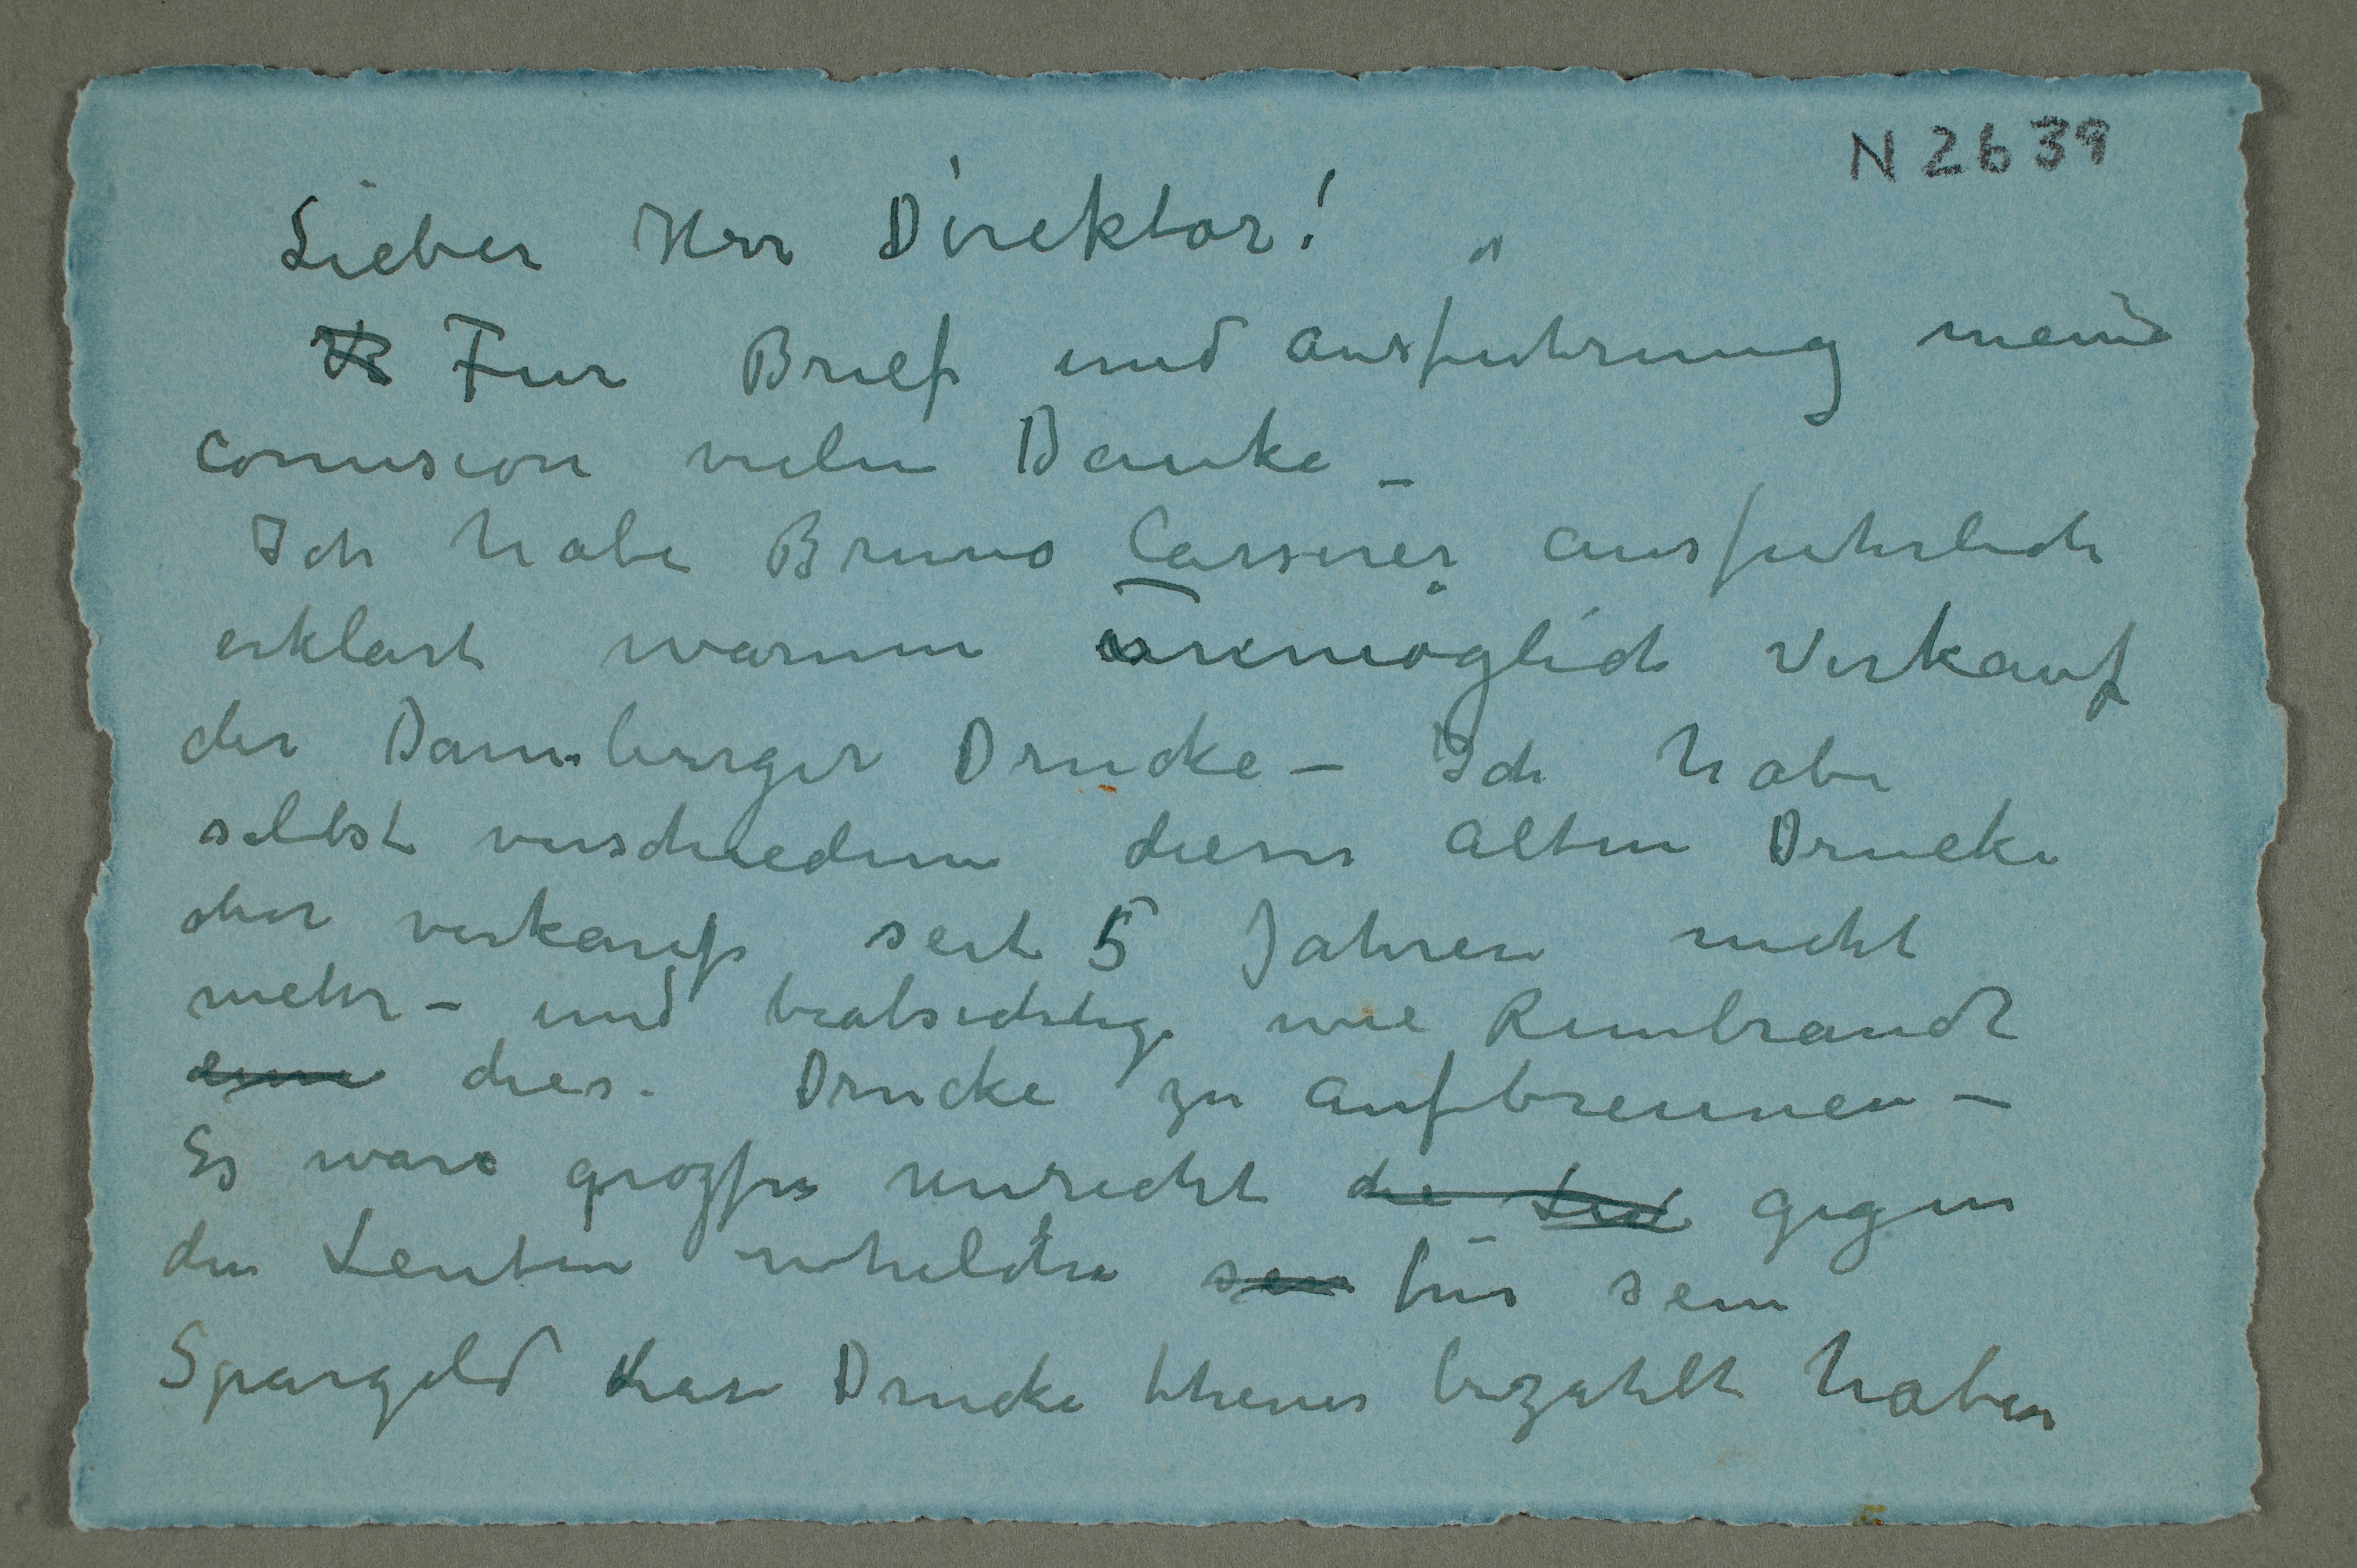 N 2639
Lieber Herr Direktor!
Fur Brief und ausfuhrung meine
comision vielen Danke –
Ich habe Bruno Cassirer ausfuhrlich
erklart warum unmöglich Verkauf
der Dannberger Drucke – Ich habe
selbst verschiedene dieser alten Drucke
der verkauf seit 5 Jahren nicht
mehr – und beabsichtige wie Rembrandt
eine dies. Drucke zu aufbrennen –
Es ware grozses unrecht die Leu gegen
den Leuten whelche sein für sein
Spargeld diese Drucke theuer bezahlt haben